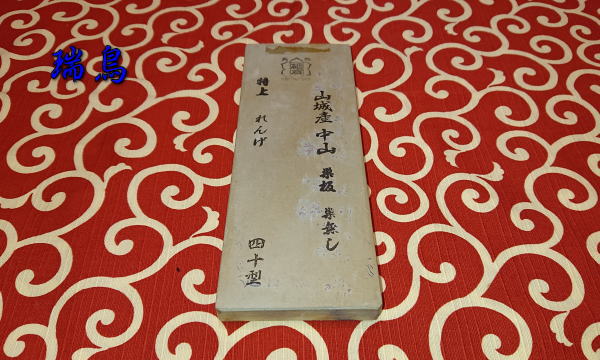 瑞鳥
山城産 中山 巣板 巣無し
特上 れんげ 四十型